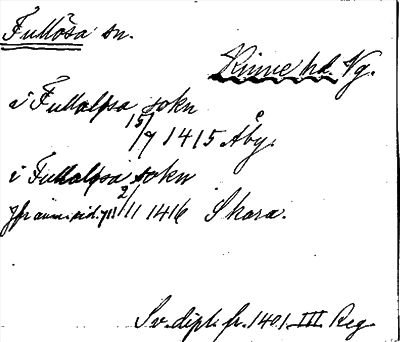 Fullösa sn.
Kinne hd. Vg.
i Fullalpsa sokn
15/7 1415 Åby.
i Fullalpsa sokn
2/11 1416 Skara.
Sv. dipl. fr. 1401 III Reg.